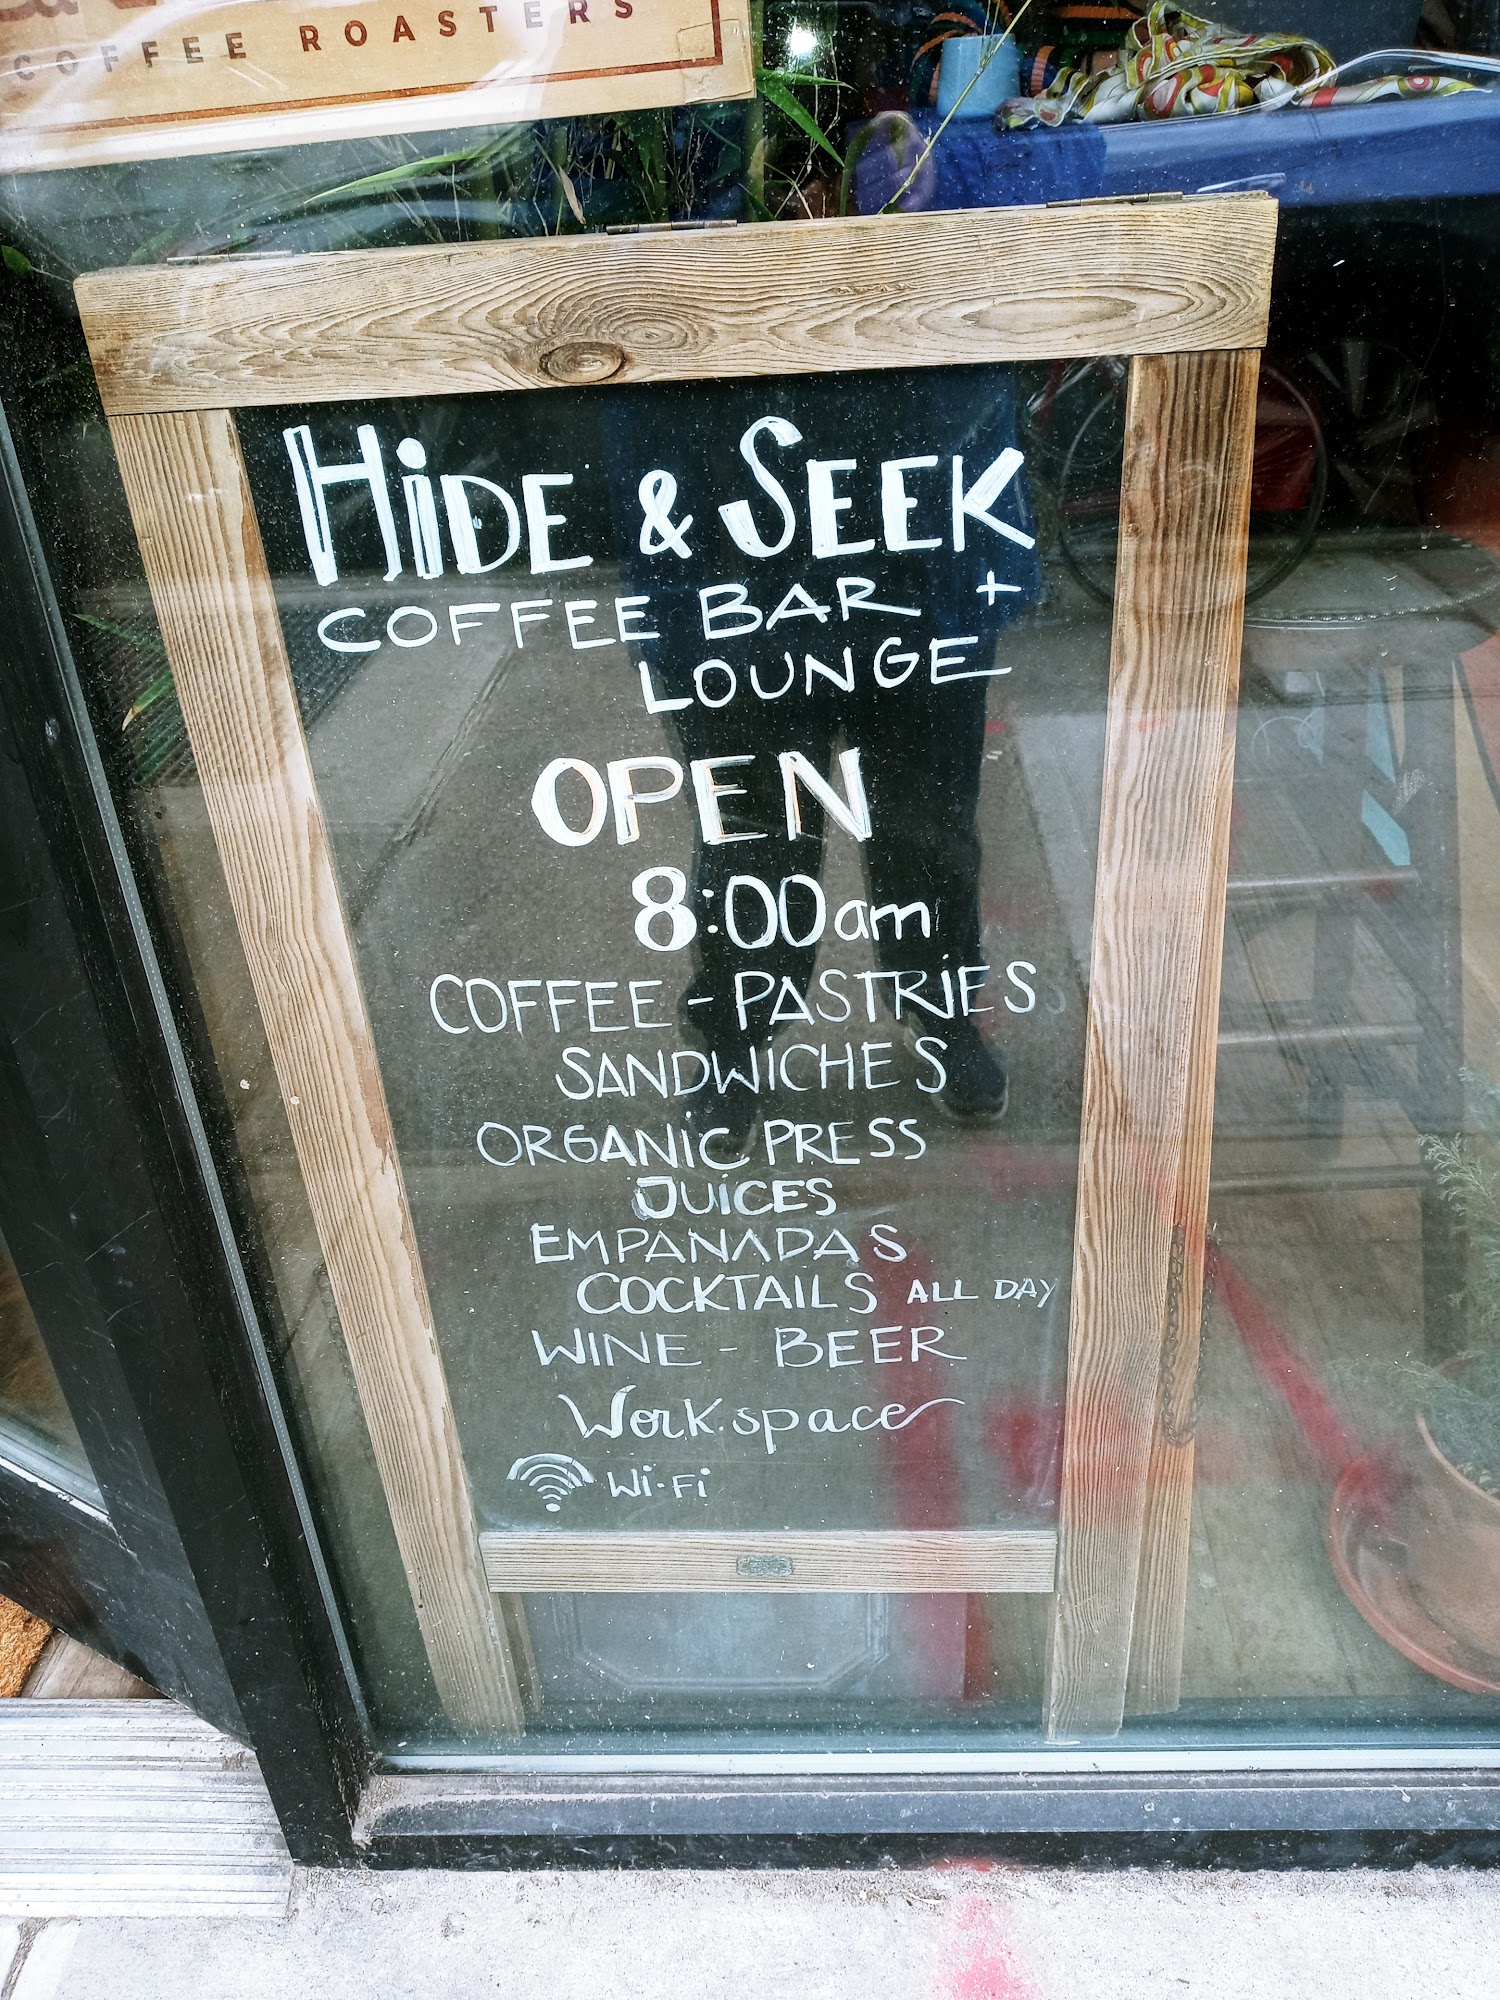 COFFEE ROASTERS
HiDE & SEEK
COFFEE BAR +
LOUNGE
OPEN
8:00am
COFFEE - PASTRiES
SANDWiCHES
ORGANiC PRESS
JUiCES
EMPANADAS
COCKTAILS ALL DAY
WINE - BEER
Work.space
Wi-Fi